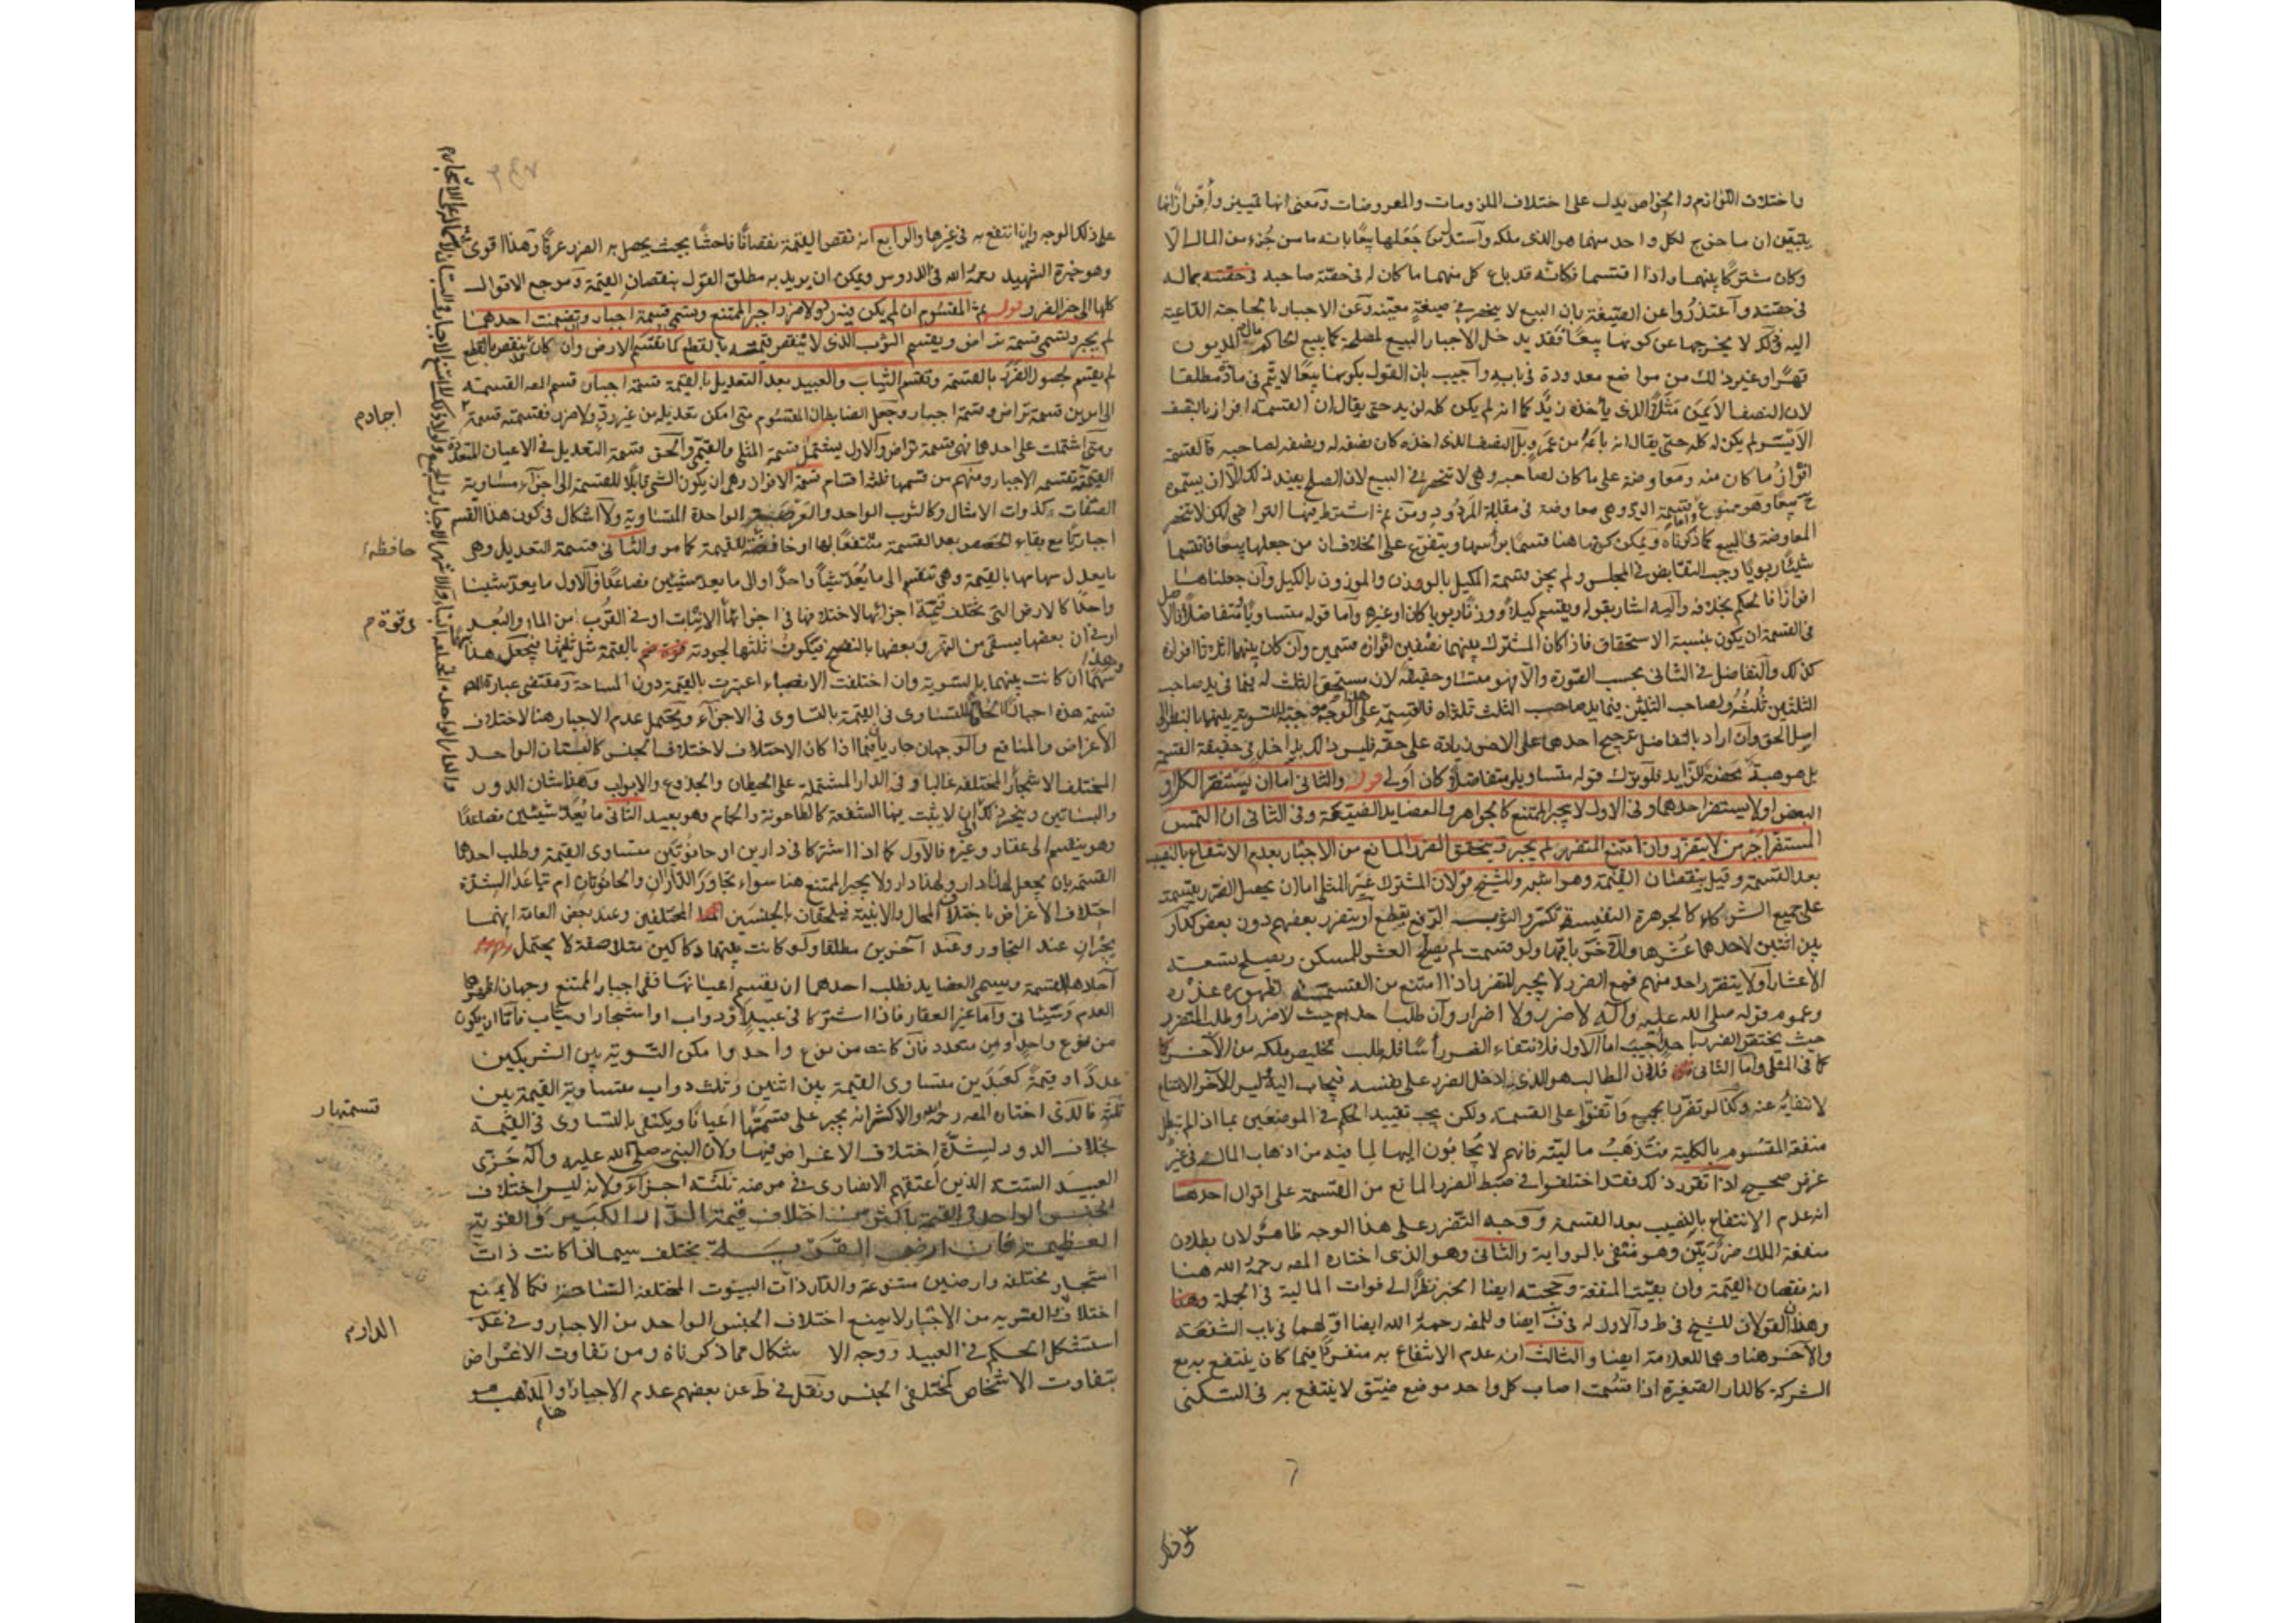 واختلاف اللوازم والخواص يدل على اختلاف الملزومات والمعروضات ومعنى انها تمييز وافراز انها
يتبين ان ما خرج لكل واحد منهما هو الذى ملكه واستدل من جعلها بيعا بانه ما من جزء من المال الا
وكان مشتركا بينهما واذا اقتسما فكانه قد باع كل منهما ما كان له فى حصة صاحبه فى حصته بماله
فى حصته واعتذروا عن الصيغة بان البيع لا ينحصر فى صيغة معينة وعن الاجبار بالحاجة الداعية
اليه فذلك لا يخرجها عن كونها بيعا فقد يدخل الاجبار البيع لمصلحة كما يبيع الحاكم مال المديون
قهرا وغير ذلك من مواضع معدودة فى بابه واجيب بان القول بكونها بيعا لا يتم فى مادة مطلقا
لان النصف الايمن مثلا الذى ياخذه زيد كما انه لم يكن كله لزيد حتى يقال ان القسمة افراز بالنصف
الايسر لم يكن له كله حتى يقال انه باعه من عمرو بل النصف الذى اخذه كان نصفه له ونصفه لصاحبه فالقسمة
افراز ما كان منه ومعاوضة على ما كان لصاحبه وهى لا تنحصر فى البيع لان الصلح يفيد ذلك الا ان يسموه
ح بيعا وهو ممنوع واما قسمة الرد وهى معاوضة فى مقابلة المردود ومن ثم اشترط فيها التراضى لكن لا تنحصر
المعاوضة فى البيع كما ذكرناه ويمكن كونها هنا قسما براسها ويتفرع على الخلاف ان من جعلها بيعا فاقتسما
شيئا ربويا وجب التقابض فى المجلس ولم يجز قسمة المكيل بالوزن والموزون بالكيل وان جعلناها
افرازا فالحكم بخلافه واليه اشار بقوله ويقسم كيلا ووزنا ربويا كان او غيره واما قوله متساويا ومتفاضلا فالاصل
فى القسمة ان يكون بنسبة الاستحقاق فاذا كان المشترك بينهما نصفين افراز قسمين وان كان بينهما اثلاثا افراز
كذلك والتفاضل فى الثانى بحسب الصورة والا فهو متساو حقيقة لان مستحق الثلث له فيما فى يد صاحب
الثلثين ثلثه ولصاحب الثلثين فيما بيد صاحب الثلث ثلثاه فالقسمة على هذا الوجه موجبة للتسوية بينهما بالنظر الى
اصل الحق وان اراد بالتفاضل ترجيح احدهما على الاخر زيادة على حقه فليس ذلك بداخل فى حقيقة القسمة
بل هو هبة محضة للزايد فلو ترك قوله متساويا ومتفاضلا كان اولى قوله والثانى اما ان يستضر الكل او
البعض او لا يستضر احدهما وفى الاول لا يجبر الممتنع كالجواهر والعضايد الضيقة وفى الثانى ان التمس
المستضر اجبر من لا يتضرر وان امتنع المتضرر لم يجبر ويتحقق الضرر المانع من الاجبار بعدم الانتفاع بالنصيب
بعد القسمة وقيل بنقصان القيمة وهو اشبه وللشيخ قولان المشترك غير المثلى اما ان يحصل الضرر بقسمته
على جميع الشركاء كالجوهرة النفيسة تكسر والثوب الرفيع يقطع او يتضرر بعضهم دون بعض كدار
بين اثنين لاحدهما عشرها والاخر باقيها ولو قسمت لم يصلح العشر للمسكن ويصلح تسعة
الاعشار او لا يتضرر احد منهم فمع الضرر لا يجبر المتضرر اذا امتنع من القسمة لظهور عذره
وعموم قوله صلى الله عليه وآله لا ضرر ولا اضرار وان طلب احدهم حيث لا ضرر او طلب المتضرر
حيث يختص الضرر باحد اجيب اما الاول فلانتفاء الضرر راسا فله طلب تخليص ملكه من الآخر
كما فى المثلى واما الثانى فلان المطالب هو الذى ادخل الضرر على نفسه فيجاب اليه وليس للآخر الامتناع
لانتفائه عنه وكذا لو تضرر الجميع واتفقوا على القسمة ولكن يجب تقييد الحكم فى الموضعين بما اذا لم تبطل
منفعة المقسوم بالكلية فتذهب ماليته فانهم لا يجابون اليها لما فيه من اذهاب المال فى غير
غرض صحيح اذا تقرر ذلك فقد اختلفوا فى ضبط الضرر المانع من القسمة على اقوال احدها
انه عدم الانتفاع بالنصيب بعد القسمة ووجه التضرر على هذا الوجه ظاهر لان بطلان
منفعة الملك ضرر بين وهو منفى بالرواية والثانى وهو الذى اختاره المصه رحمه الله هنا
انه نقصان القيمة وان بقيت المنفعة وحجته ايضا الخبر نظرا الى فوات المالية فى الجملة
وهذان القولان للشيخ فى ط والاول له فى ف ايضا وللمصه رحمه الله ايضا اولهما فى باب الشفعة
والآخر هنا وهما للعلامة ايضا والثالث انه عدم الانتفاع به منفردا فيما كان ينتفع به مع
الشركة كالدار الصغيرة اذا قسمت اصاب كل واحد موضع ضيق لا ينتفع به فى السكنى
على ذلك الوجه وان انتفع به فى غيرها والرابع انه نقص القيمة نقصانا فاحشا بحيث يحصل به الضرر عرفا وهذا اقوى
وهو خيرة الشهيد رحمه الله فى الدروس ويمكن ان يريد به مطلق القول بنقصان القيمة ومرجع الاقوال
كلها الى خبر الضرر قوله ثم المقسوم ان لم يكن فيه رد ولا ضرر اجبر الممتنع وتسمى قسمة اجبار وتضمنت احدهما
لم يجبر وتسمى قسمة تراض ويقسم الثوب الذى لا تنقص قيمته بالقطع كما تقسم الارض وان كان ينقص بالقطع
لم يقسم لحصول الضرر بالقسمة وتقسم الثياب والعبيد بعد التعديل بالقيمة قسمة اجبار قسم المصه القسمة
الى امرين قسمة تراض وقسمة اجبار وجعل الضابط ان المقسوم متى امكن تعديله من غير رد ولا ضرر فقسمته قسمة
ومتى اشتملت على احدهما فهى قسمة تراض والاول يشتمل قسمة المثلى والقيمى والحق قسمة التعديل فى الاعيان المتعددة
القيمة بقسمة الاجبار ومنهم من قسمها ثلثة اقسام قسمة الافراز وهى ان يكون الشئ قابلا للقسمة الى اجزاء متساوية
الصفات كذوات الامثال وكالثوب الواحد والعرصة الواحدة المتساوية ولا اشكال فى كون هذا القسم
اجباريا مع بقاء الحصص بعد القسمة منتفعا بها او حافظة للقيمة كما مر والثانى قسمة التعديل وهى
ما يعدل سهامها بالقيمة وهى تنقسم الى ما يعد شيئا واحدا والى ما يعد شيئين فصاعدا فالاول ما يعد شيئا
واحدا كالارض التى تختلف قيمة اجزائها لاختلافها فى اجزائها الانبات او فى القرب من الماء والبعد
او فى ان بعضها يسقى من النهر وبعضها بالنضح فيكون ثلثها لجودته بالقيمة مثل ثلثيها فيجعل هذا سهما وهذا
سهما ان كانت بينهما بالسوية وان اختلفت الانصباء اعتبرت بالقيمة دون المساحة ومقتضى عبارة المصه
قسمة هذه اجبارا الحاقا للتساوى فى القيمة بالتساوى فى الاجزاء ويحتمل عدم الاجبار هنا لاختلاف
الاغراض والمنافع والوجهان جاريان فيما اذا كان الاختلاف لاختلاف الجنس كالبستان الواحد
المختلف الاشجار المختلفة غالبا وفى الدار المشتملة على الحيطان والجذوع والابواب وهذا شان الدور
والبساتين وينجر ذلك الى ان لا يثبت فيها الشفعة كالطاحونة والحمام وهو بعيد الثانى ما يعد شيئين فصاعدا
وهو ينقسم الى عقار وغيره فالاول كما اذا اشتركا فى دارين او حانوتين متساوى القيمة وطلب احدهما
القسمة بان يجعل لهذا دار ولهذا دار ولا يجبر الممتنع هنا سواء تجاور الداران والحانوتان ام تباعدا لشدة
اختلاف الاغراض باختلاف المحال والابنية فيلحقان بالجنسين المختلفين وعند بعض العامة انهما
يجبران عند التجاور وعند آخرين مطلقا ولو كانت بينهما دكاكين متلاصقة لا يحتمل
آحادها القسمة ويسمى العضايد فطلب احدهما ان يقتسم اعيانها ففى اجبار الممتنع وجهان اظهرهما
العدم وسياتى واما غير العقار فاذا اشتركا فى عبيد او دواب او اشجار او ثياب فاما ان يكون
من نوع واحد او من متعدد فان كانت من نوع واحد وامكن التسوية بين الشريكين
عددا وقيمة كعبدين متساوى القيمة بين اثنين وثلث دواب متساوية القيمة بين
ثلثة فالذى اختاره المصه رحمه الله والاكثر انه يجبر على قسمتها اعيانا ويكتفى بالتساوى فى القيمة
بخلاف الدور لشدة اختلاف الاغراض فيها ولان النبى صلى الله عليه وآله جزى
العبيد الستة الذين اعتقهم الانصارى فى مرضه ثلثة اجزاء ولانه ليس اختلاف
الجنس الواحد فى القيمة باكثر من اختلاف قيمة الدار الكبيرة والقرية
العظيمة فان ارض القرية يختلف سيما اذا كانت ذات
اشجار مختلفة وارضين متنوعة والدار ذات البيوت المختلفة الساحة فكما لا يمنع
اختلاف القرية من الاجبار لا يمنع اختلاف الجنس الواحد من الاجبار وفى عد
استشكل الحكم فى العبيد ووجه الاشكال مما ذكرناه ومن تفاوت الاغراض
بتفاوت الاشخاص كمختلفى الجنس ونقل فى ط عن بعضهم عدم الاجبار والمذهب هو
هنا
اجبار م
حافظة
وقوة م
قسمتها
الدار م